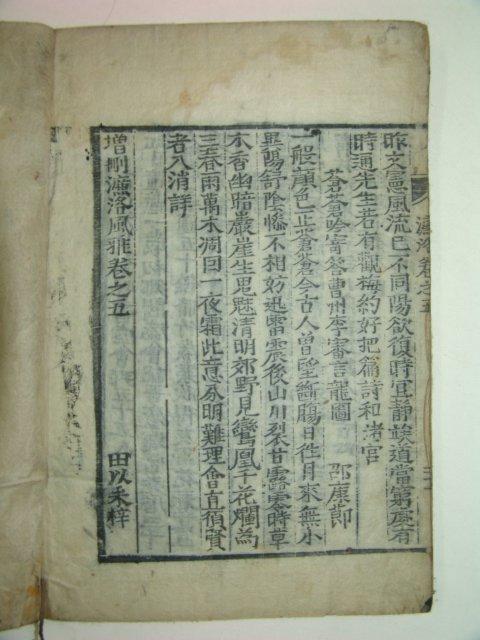 濂洛卷之五
昨文憲風流已不同陽欲復時宜靜竢道當窮處有
時通先生若有觀梅約好把篇詩和渚宮
蒼蒼吟寄答曹州李審言龍圖 邵康節
一般顔色正蒼蒼今古人曾望斷腸日往月來無小
異陽舒陰慘不相妨迅雷震後山川裂甘露零時草
木香幽暗巖崖生鬼魅清明郊野見鸞凰千花爛爲
三春雨萬木凋因一夜霜此意分明難理會直須賢
者入消詳
增刪濂洛風雅卷之五 田以采梓